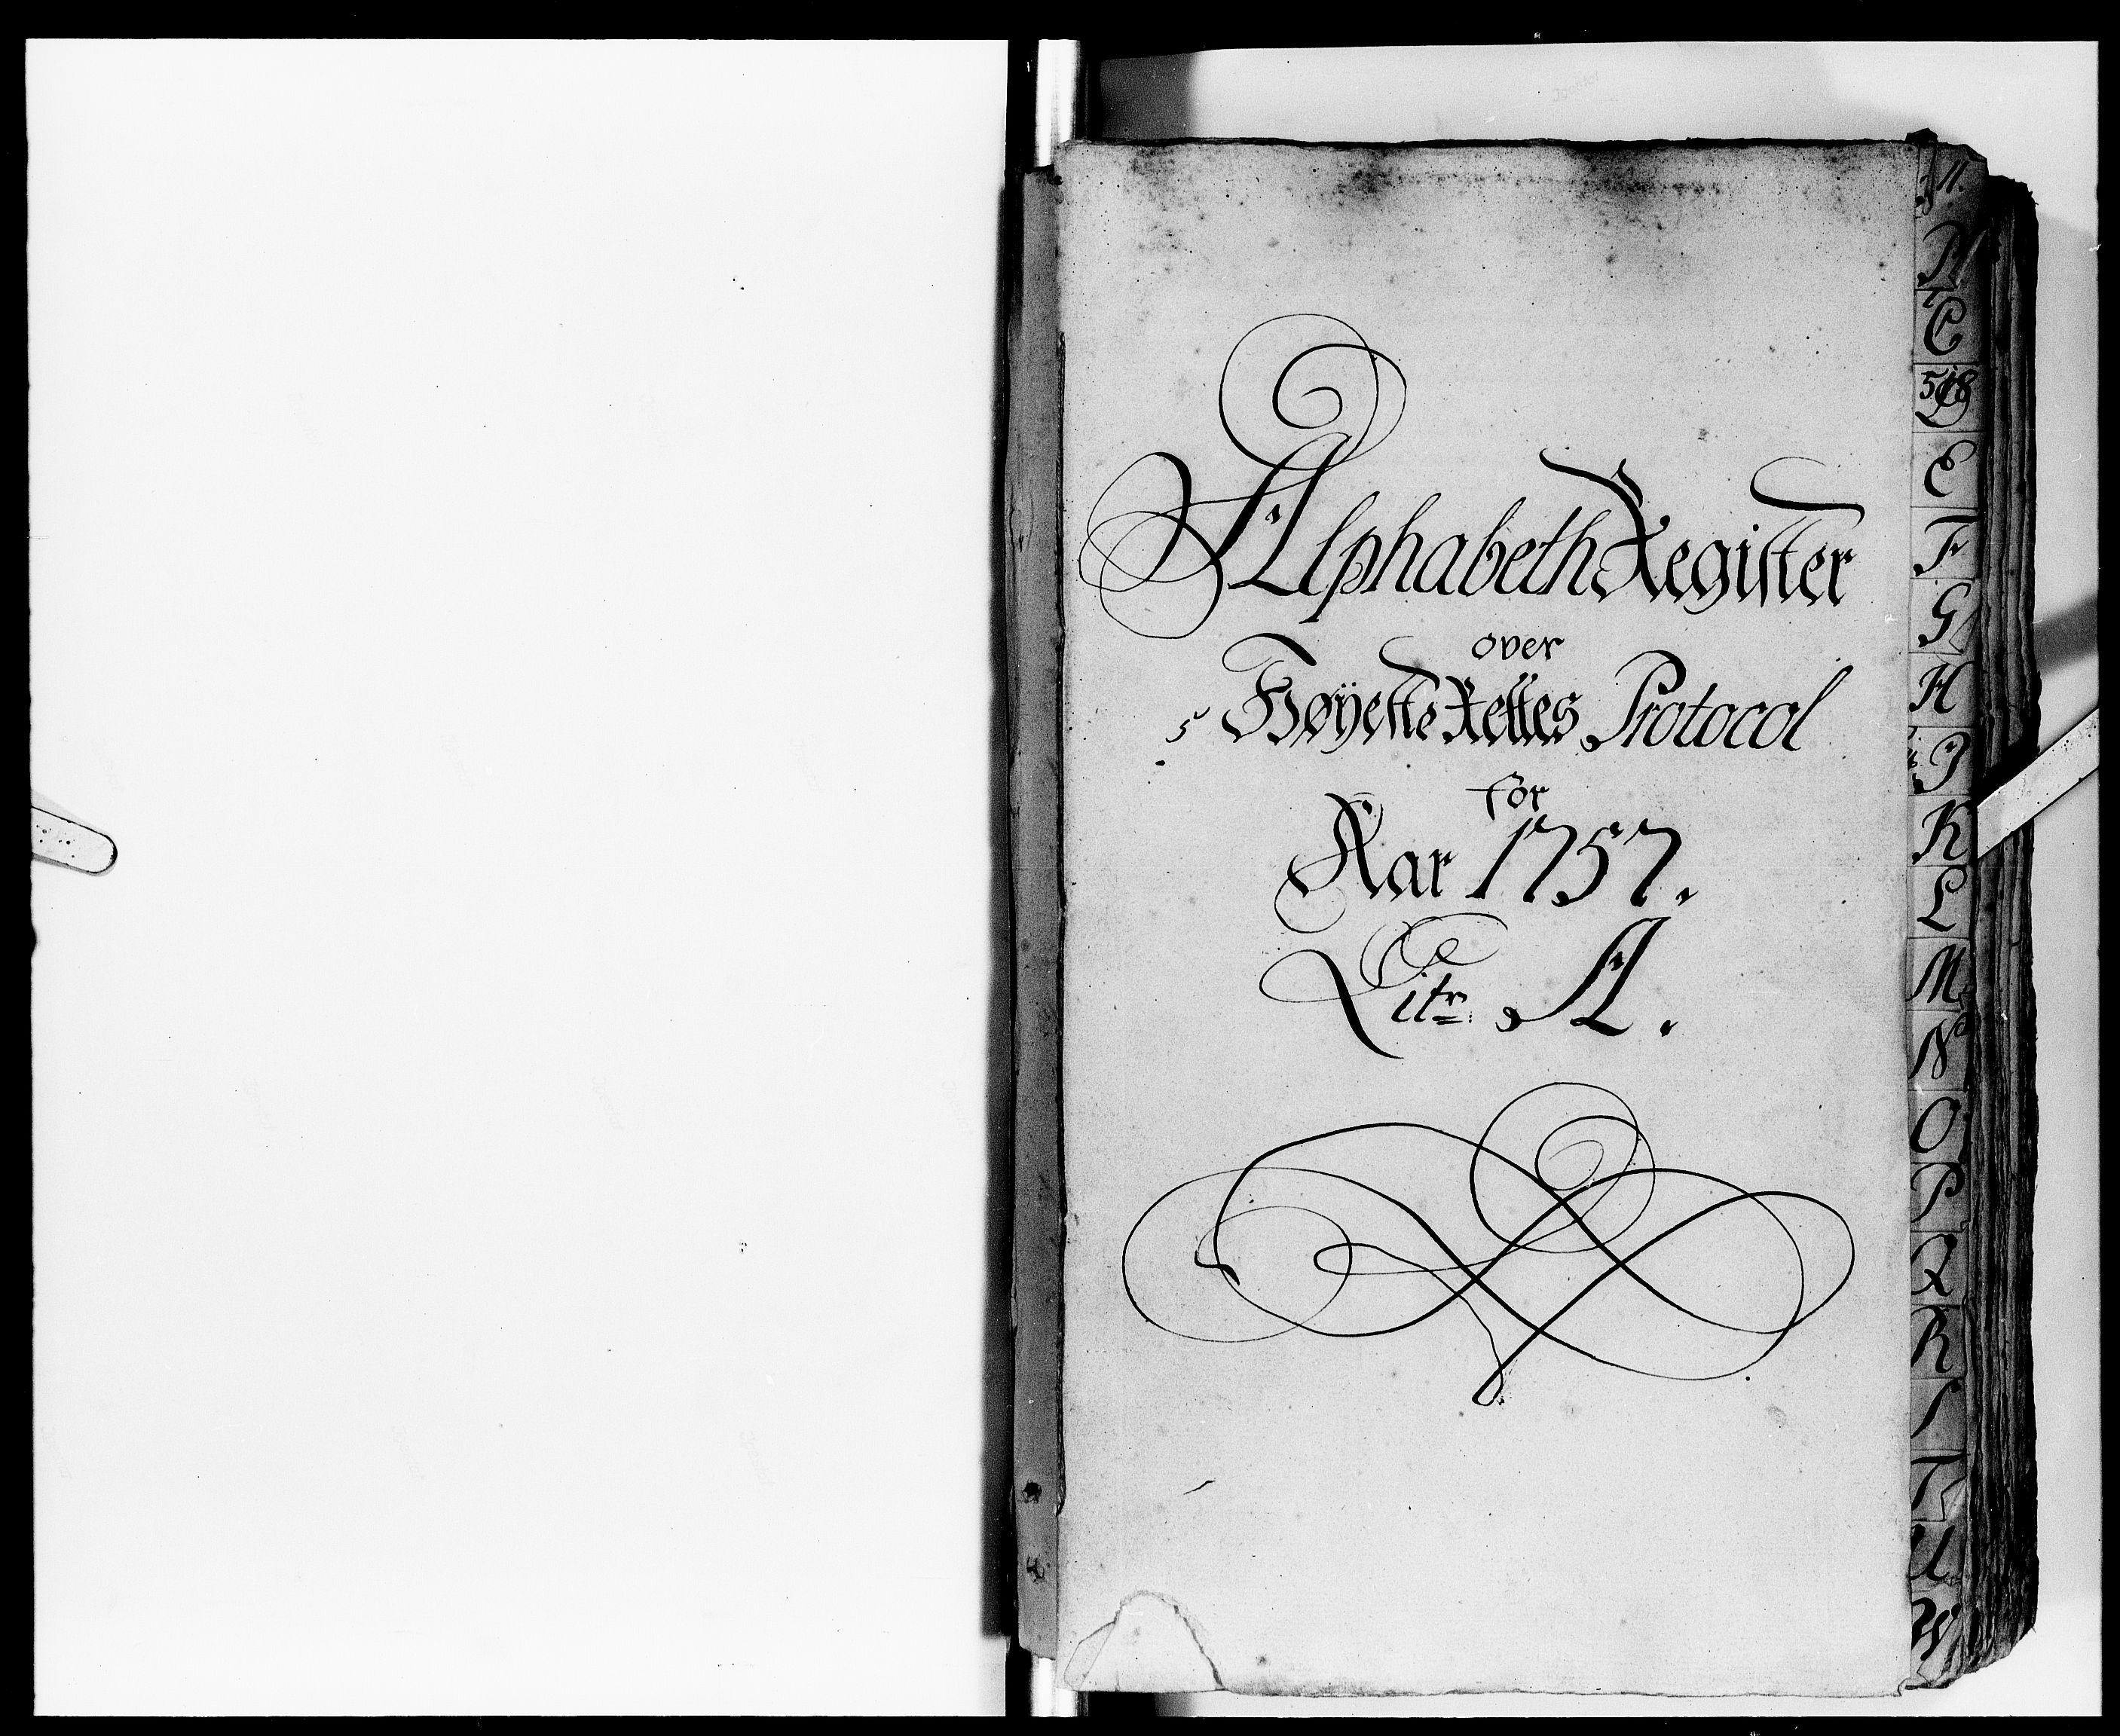 Alphabeth Register
over
Høyeste Rettes Protocol
for
Aar 1757.
Litr A.
A.
B
C
D
E
F
G
H
I
K
L
M
N
O
P
Q
R
S
T
U
W